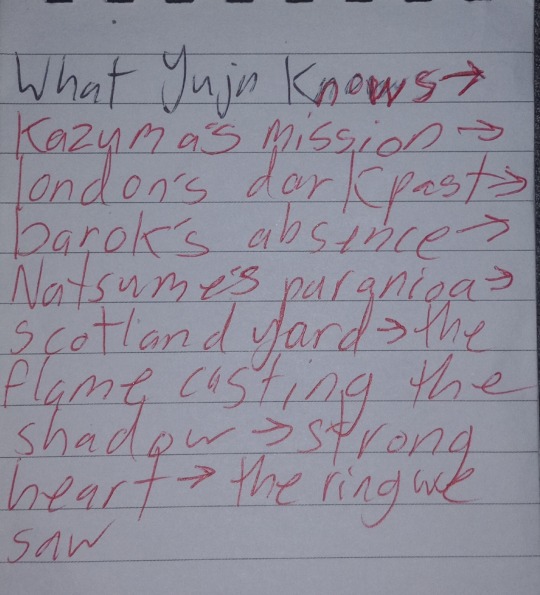 What Yujn Knows→
Kazuma's mission →
london's dark past→
barok's absince →
Natsume's puranioa→
scotland yard→ the
flame casting the
shadow → strong
heart → the ring we
saw